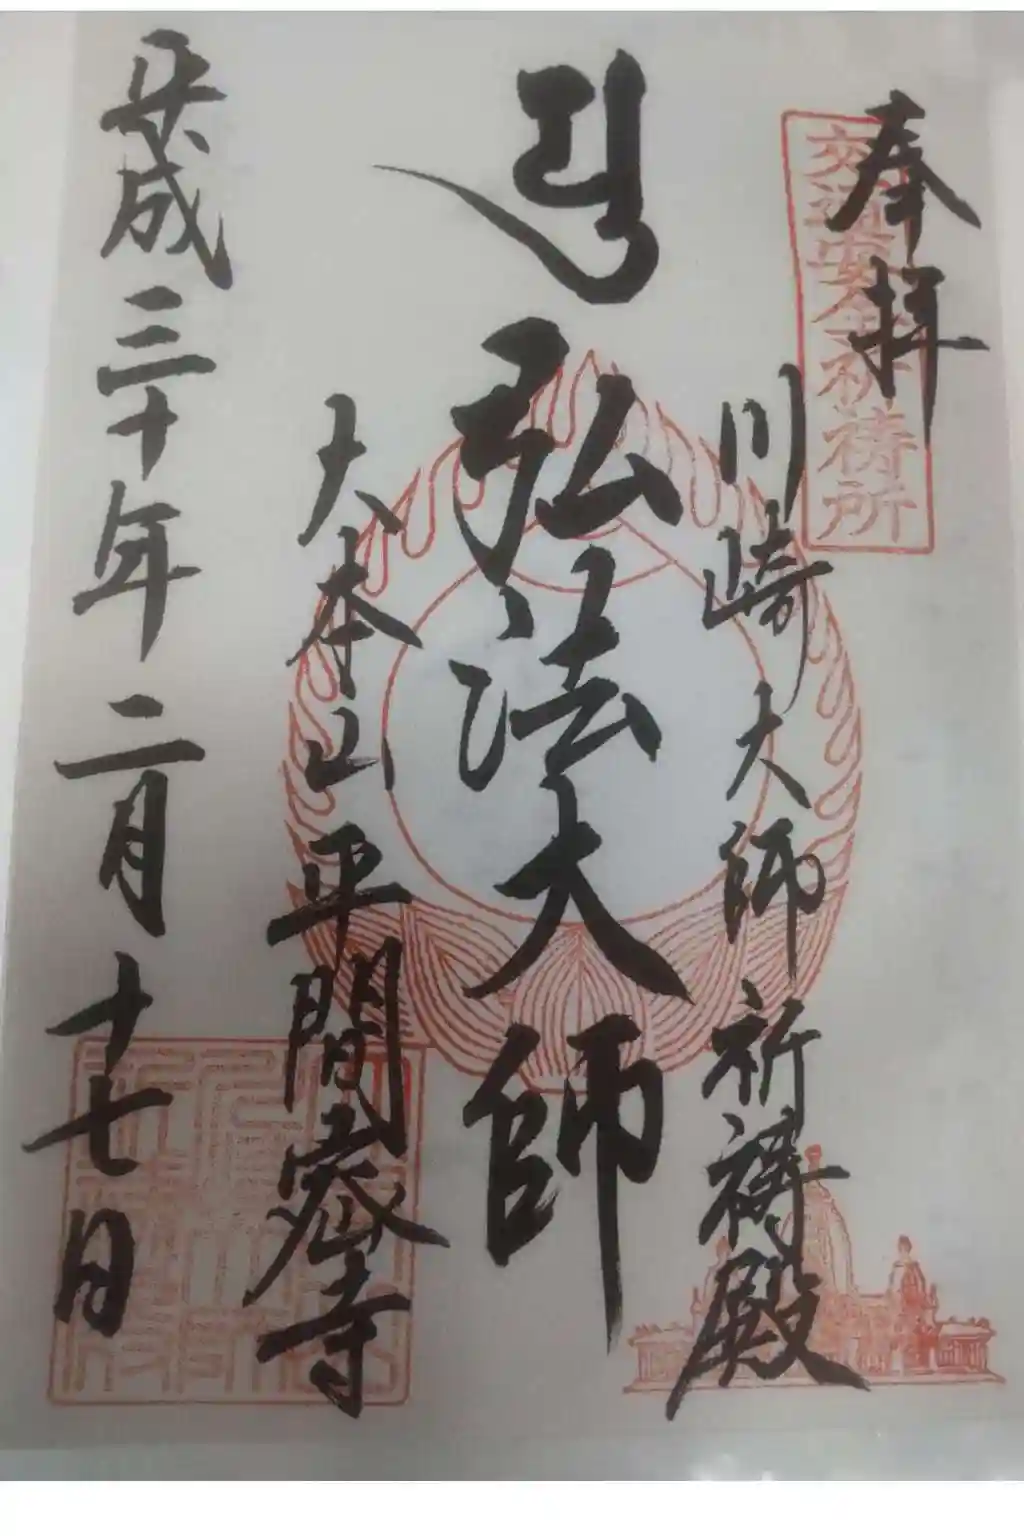 奉拝
交通安全祈祷所
川崎大師祈祷殿
弘法大師
大本山平間寺
平成三十年二月十七日